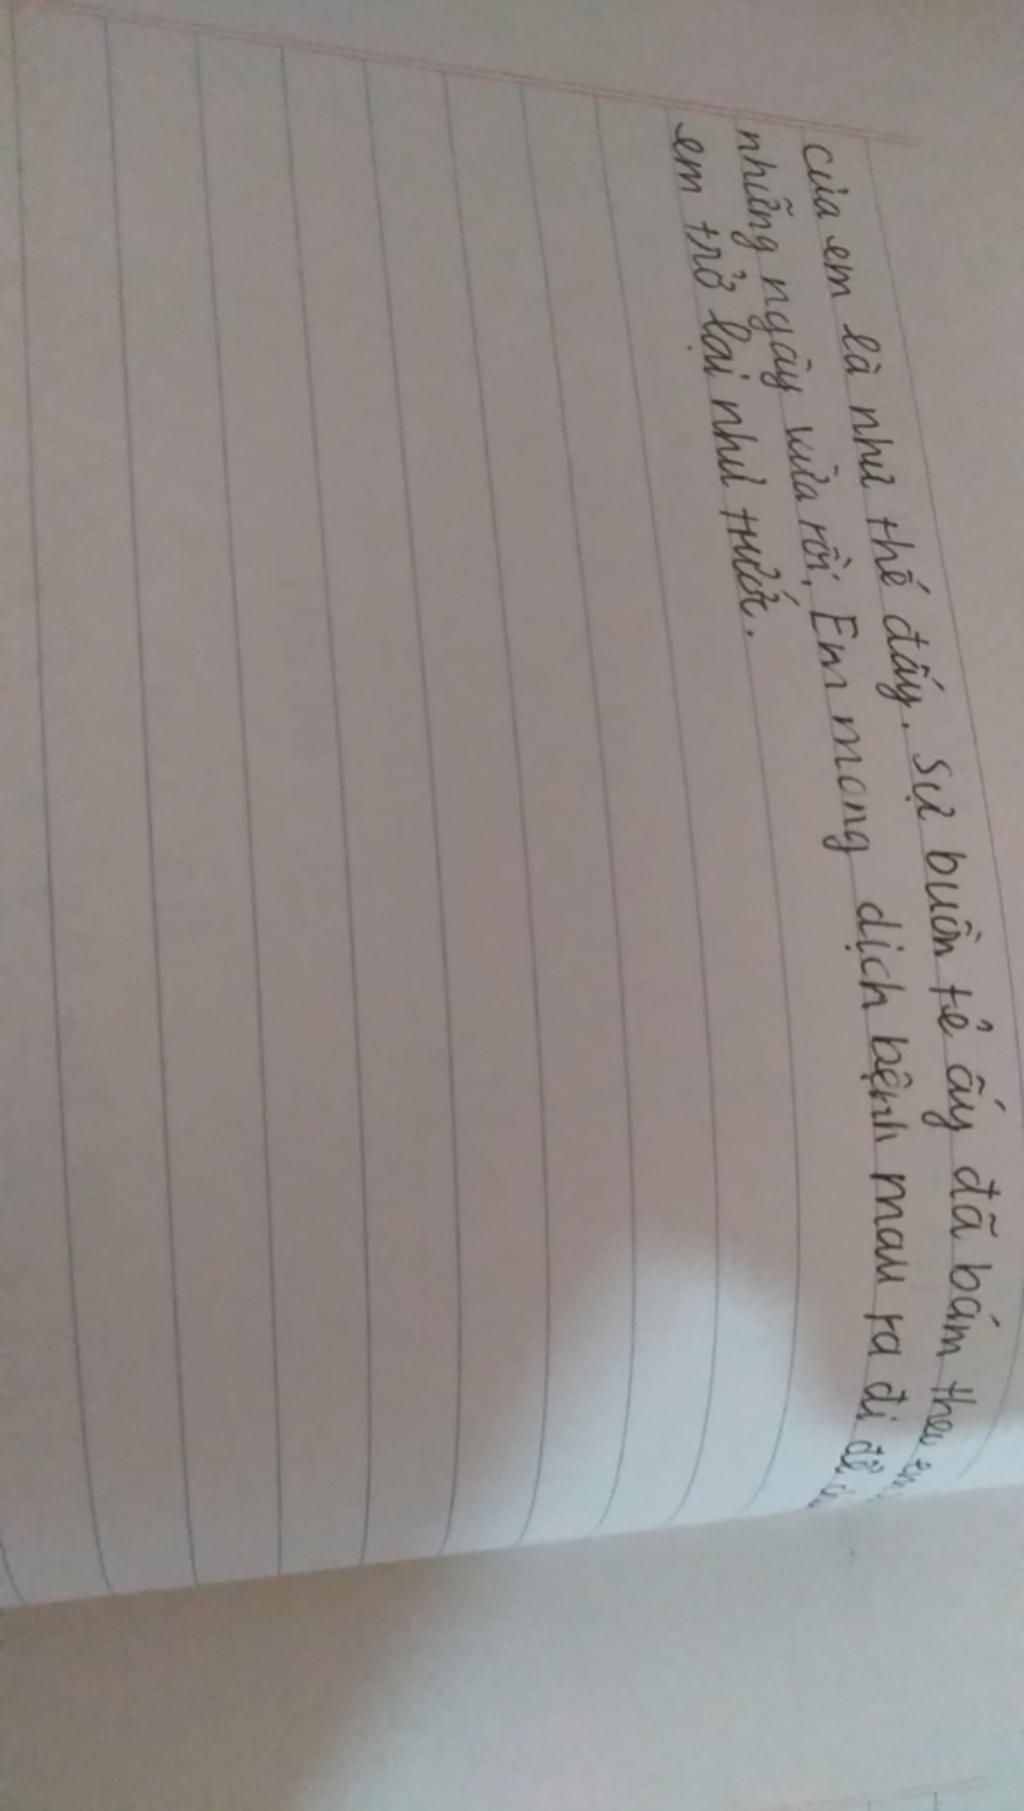 của em là như thế đấy. Sự buồn tẻ ấy đã bám theo em
những ngày vừa rồi. Em mong dịch bệnh mau ra đi để
em trở lại như trước.